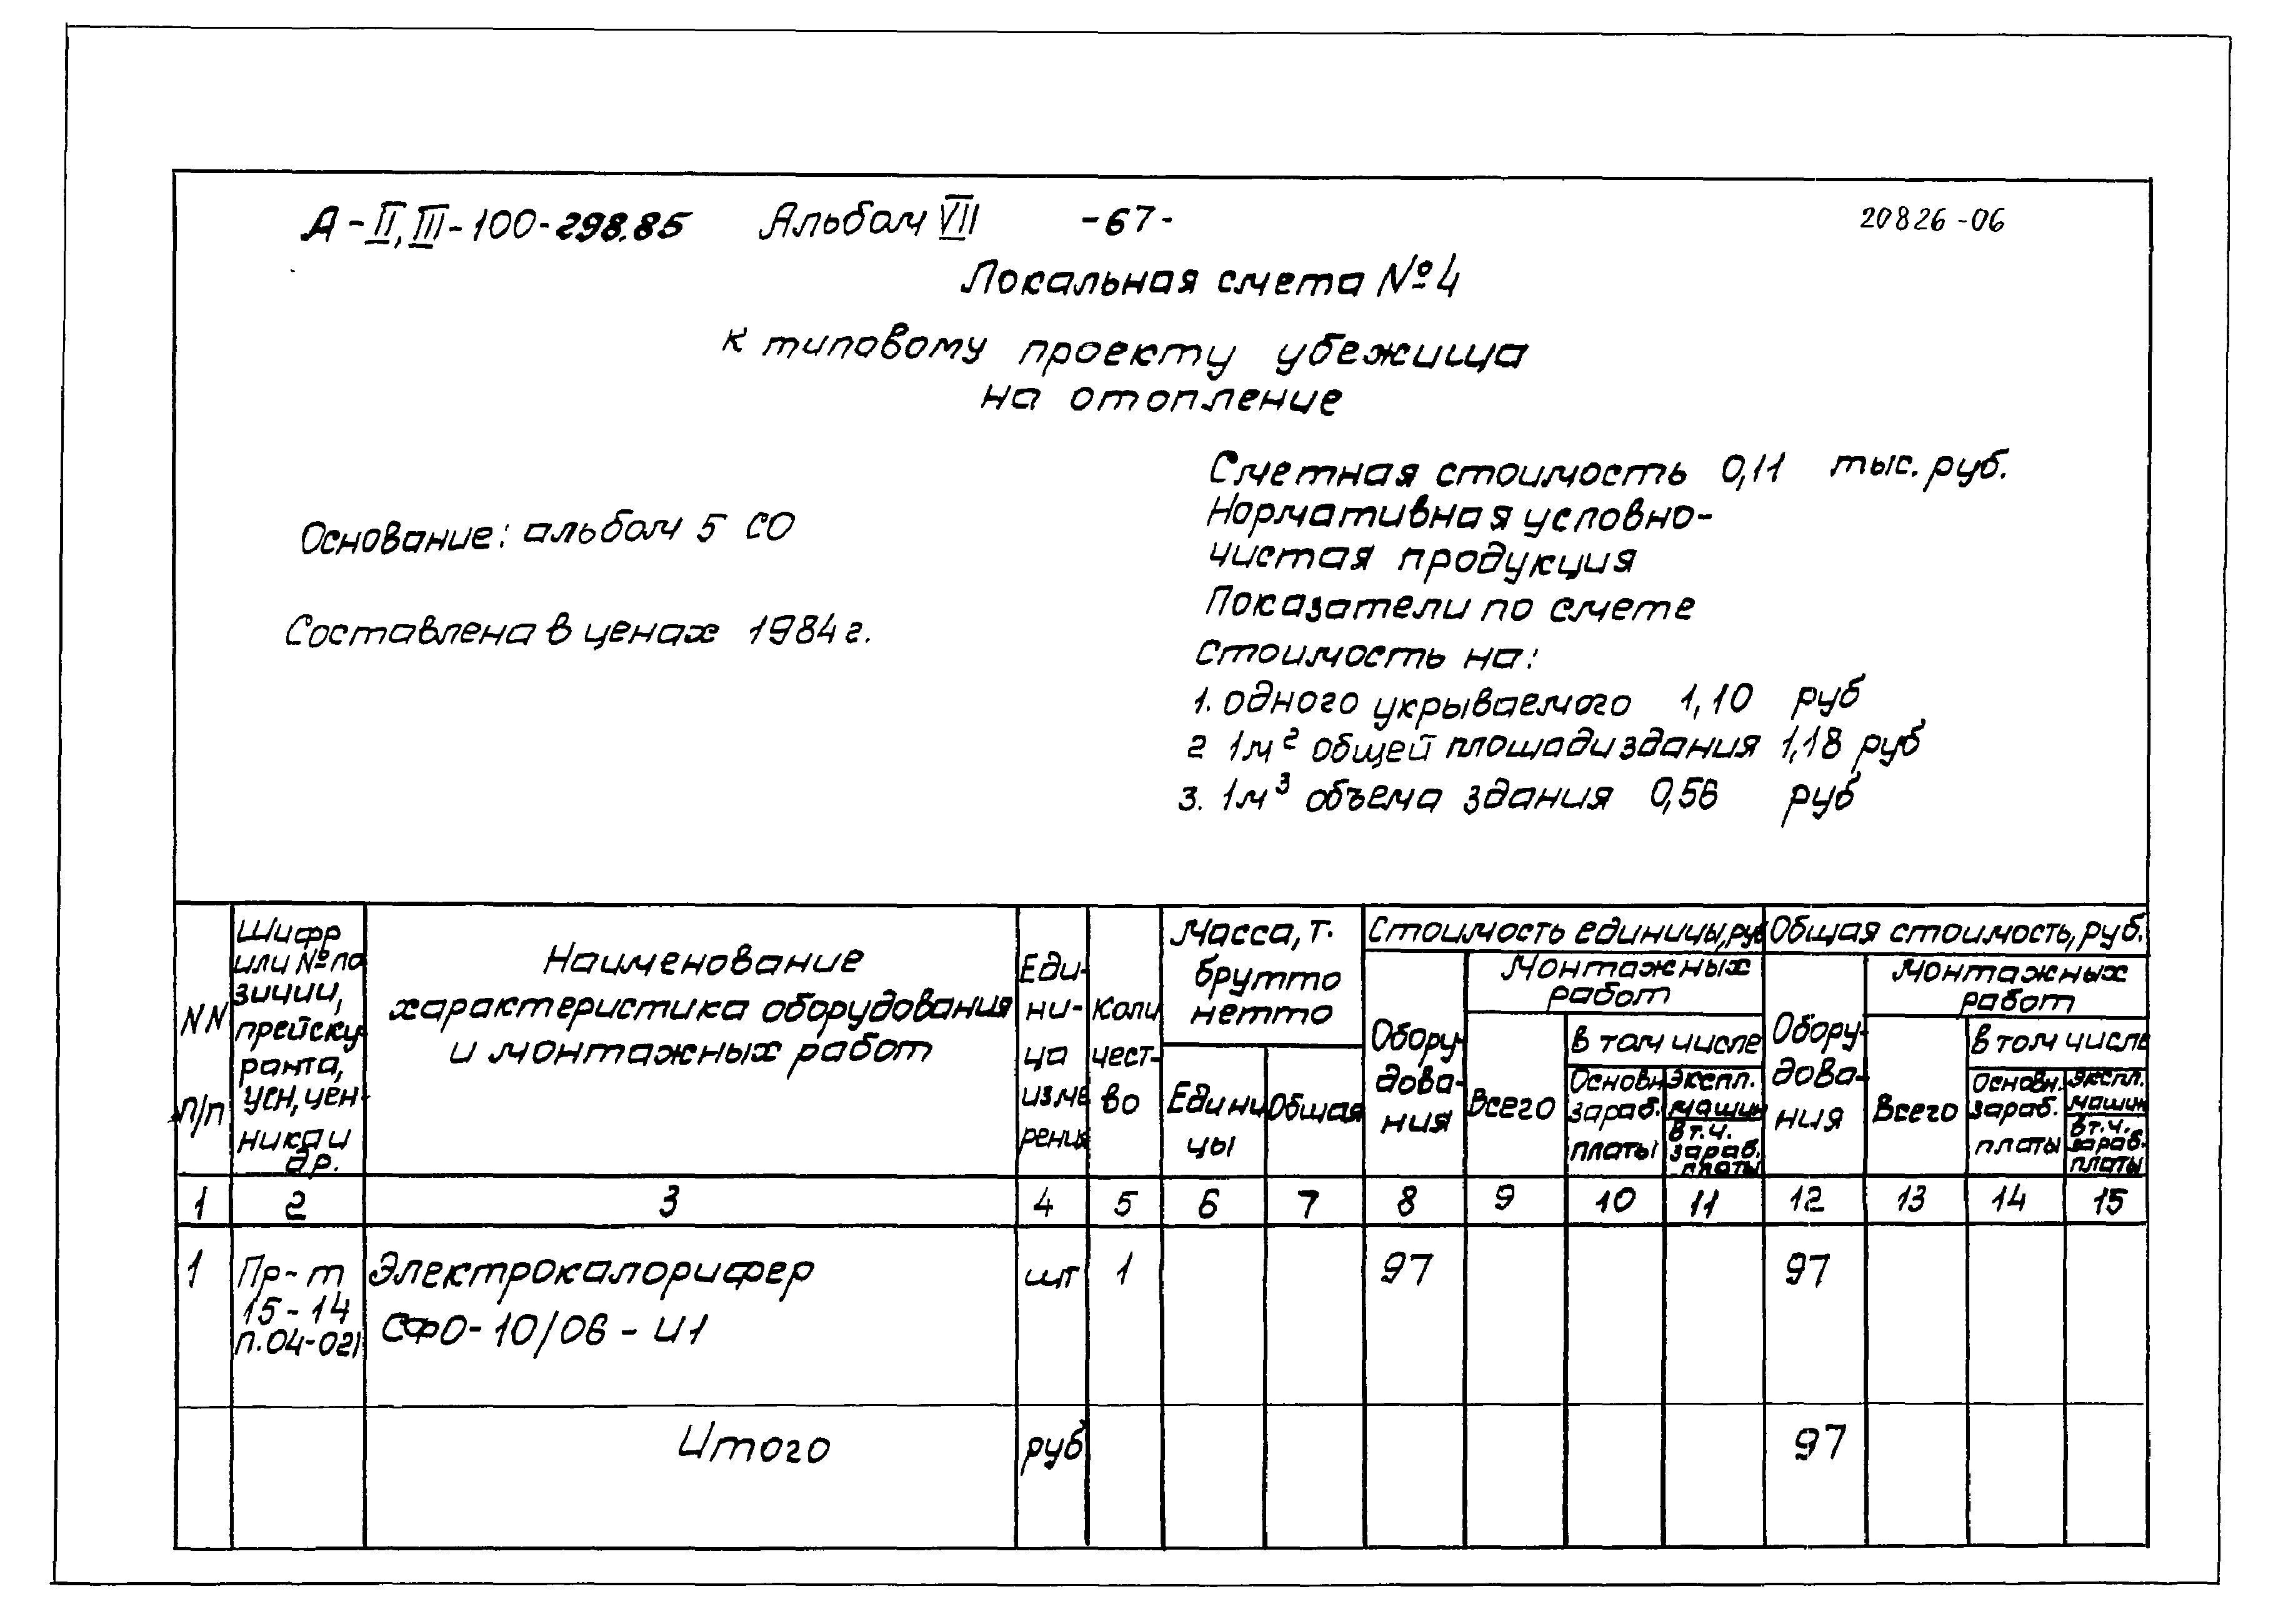 А-II,III-100-298.85 Альбом VII -67- 20826-06
Локальная смета №4
к типовому проекту убежища
на отопление
Сметная стоимость 0,11 тыс. руб.
Нормативная условно-
чистая продукция
Основание: альбом 5 СО
Показатели по смете
Составлена в ценах 1984г.
стоимость на:
1. одного укрываемого 1,10 руб
2 1м² общей площади здания 1,18 руб
3. 1м³ объема здания 0,56 руб
NN
п/п
Шифр
или № по
зиции,
прейску-
ранта,
УСН, цен-
ника и
др.
Наименование
характеристика оборудования
и монтажных работ
Еди-
ни-
ца
изме
рения
Коли
чест-
во
Масса, т.
брутто
нетто
Едини
цы
Общая
Стоимость единицы, руб
Обору-
дова-
ния
Монтажных
работ
Всего
в том числе
Основн.
зараб.
платы
Экспл.
машин
в т.ч.
зараб.
платы
Общая стоимость, руб.
Обору-
дова-
ния
Монтажных
работ
Всего
в том числе
Основн.
зараб.
платы
Экспл.
машин
в т.ч.
зараб.
платы
1 2 3 4 5 6 7 8 9 10 11 12 13 14 15
1 Пр-т Электрокалорифер шт 1 97 97
15-14
п.04-021 СФО-10/06-И1
Итого руб 97